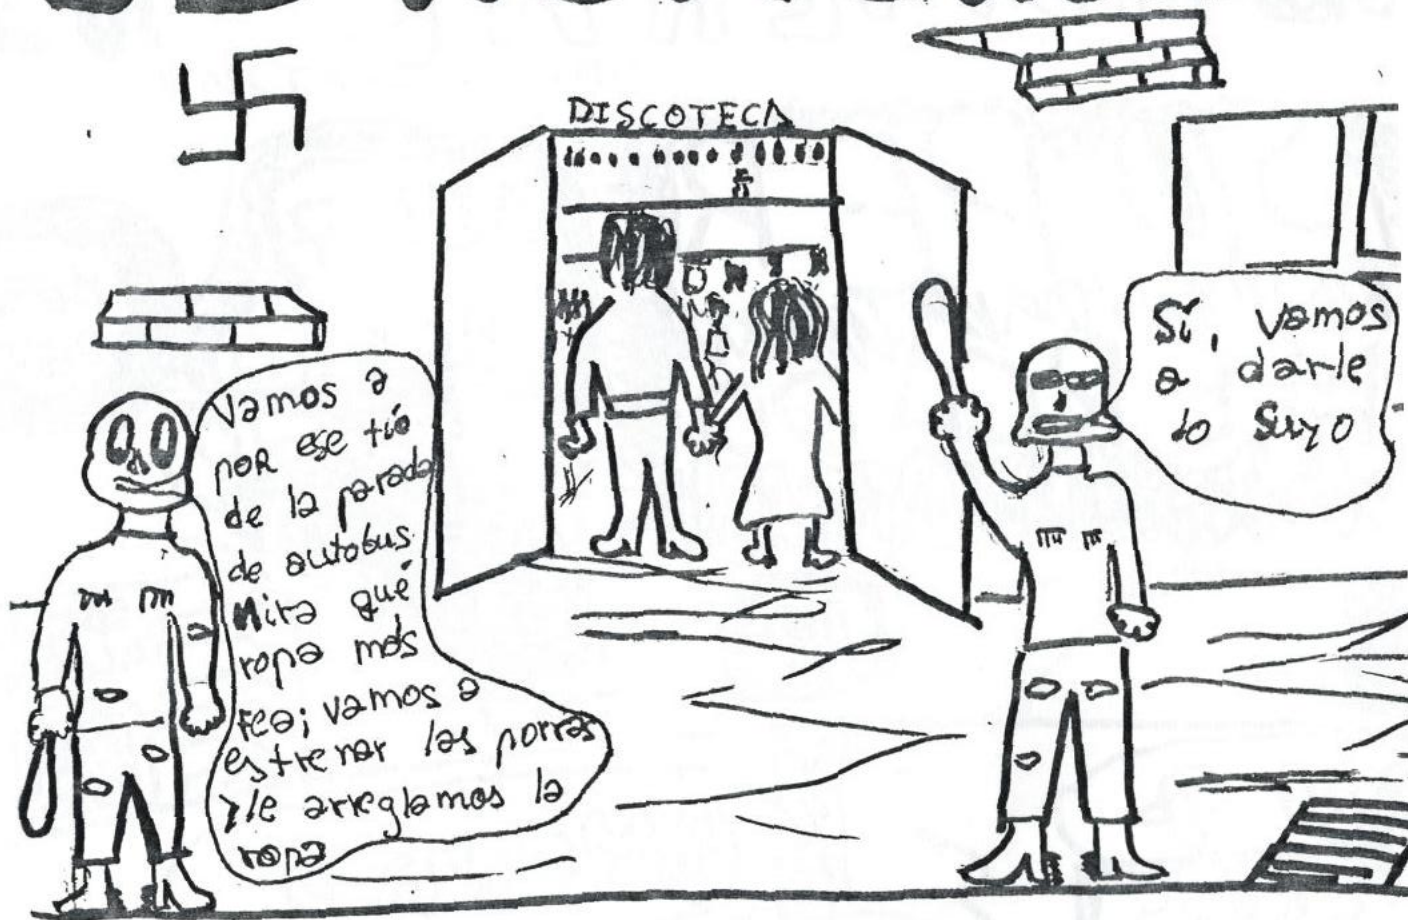 DISCOTECA
Vamos a
por ese tió
de la parada
de autobus.
Mira qué
ropa más
fea; vamos a
estrenar las porras
y le arreglamos la
ropa
Sí, vamos
a darle
lo suyo